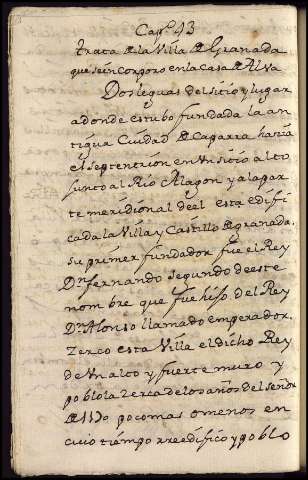 Cap.º 43
trata de la Villa de Granada
que se incorporo en la casa de Alva
Dos leguas del sitio y lugar
adonde estubo fundada la an
tigua Ciudad de Caparra hazia
el septentrion en Un sitio alto
junto al Rio Alagon y a la par
te meridional de el esta edifi
cada la Villa y Castillo de granada
su primer fundador fue el Rey
Dⁿ fernando segundo de este
nombre que fue hijo del Rey
Dⁿ Alonso llamado emperador.
Zerco esta Villa el dicho Rey
de Un alto y fuerte muro y
poblola Zerca de los años del señor
de 1170 poco mas o menos en
cuio tiempo rreedifico y poblo